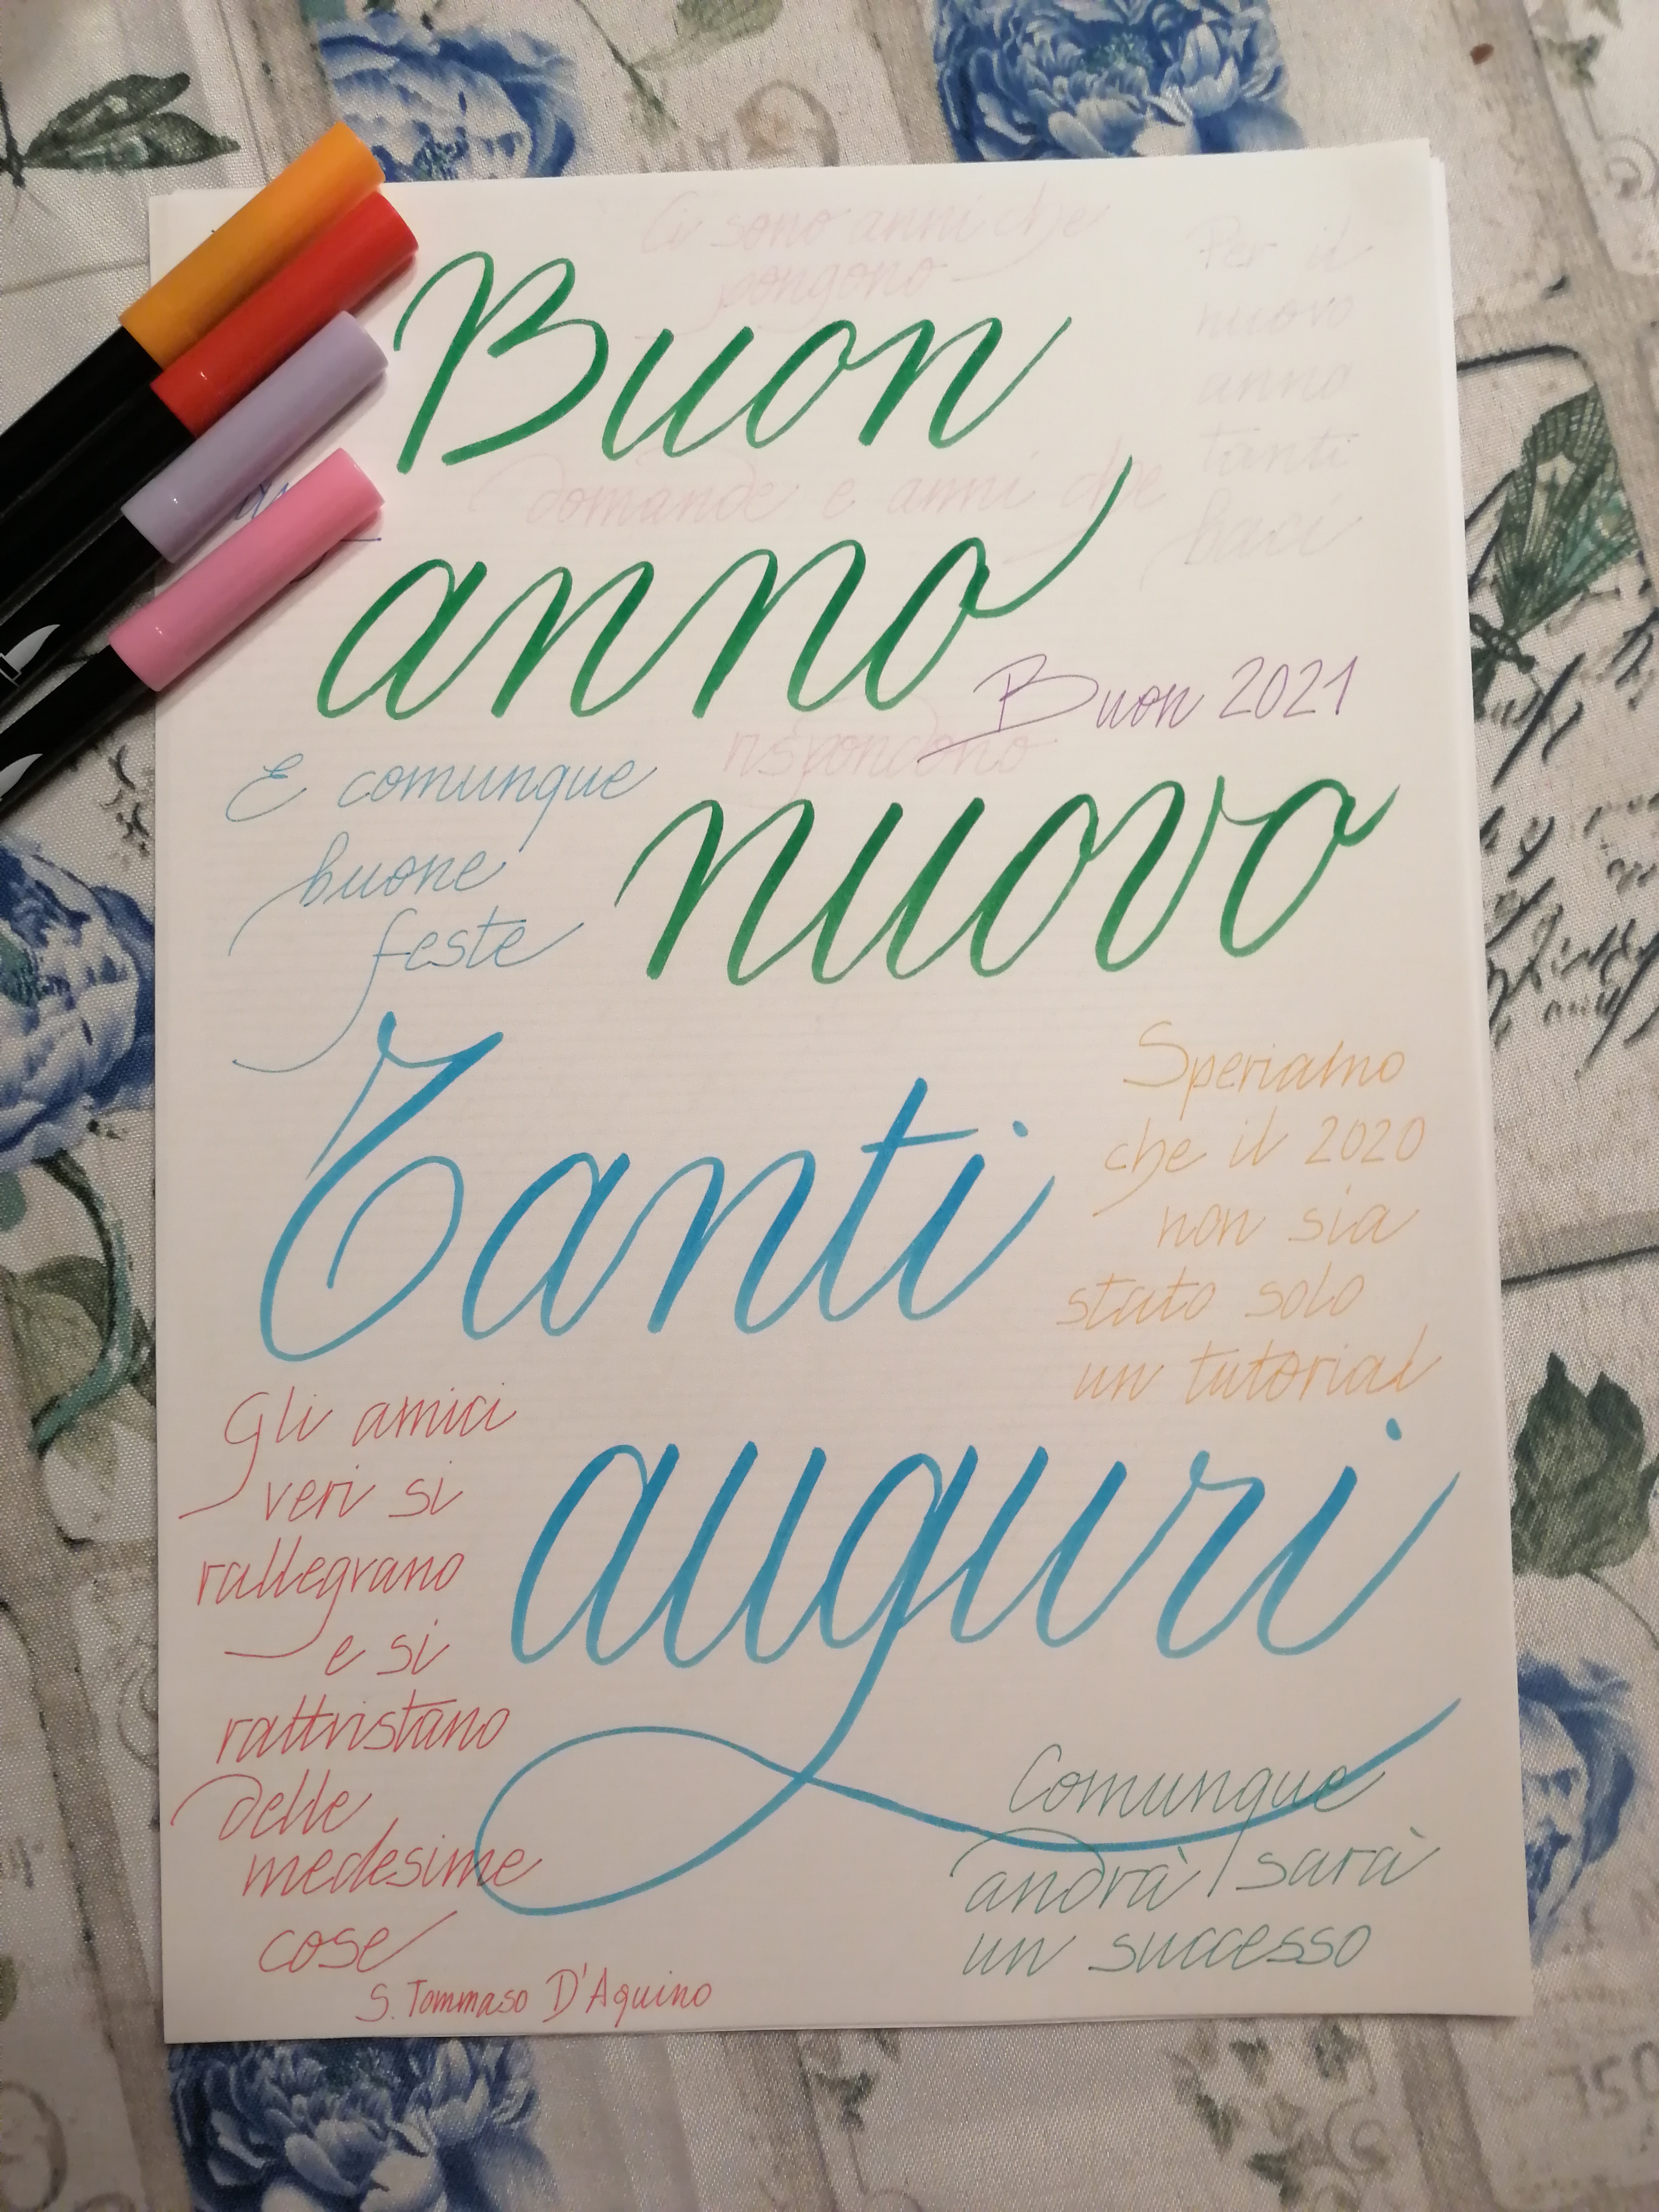 Ci sono anni che
pongono
Per il
nuovo
anno
tanti
baci
Buon
domande e anni che
anno
Buon 2021
rispondono
E comunque
buone
feste
nuovo
Tanti
Speriamo
che il 2020
non sia
stato solo
un tutorial
auguri
Gli amici
veri si
rallegrano
e si
rattristano
delle
medesime
cose
S. Tommaso D'Aquino
Comunque
andrà sarà
un successo